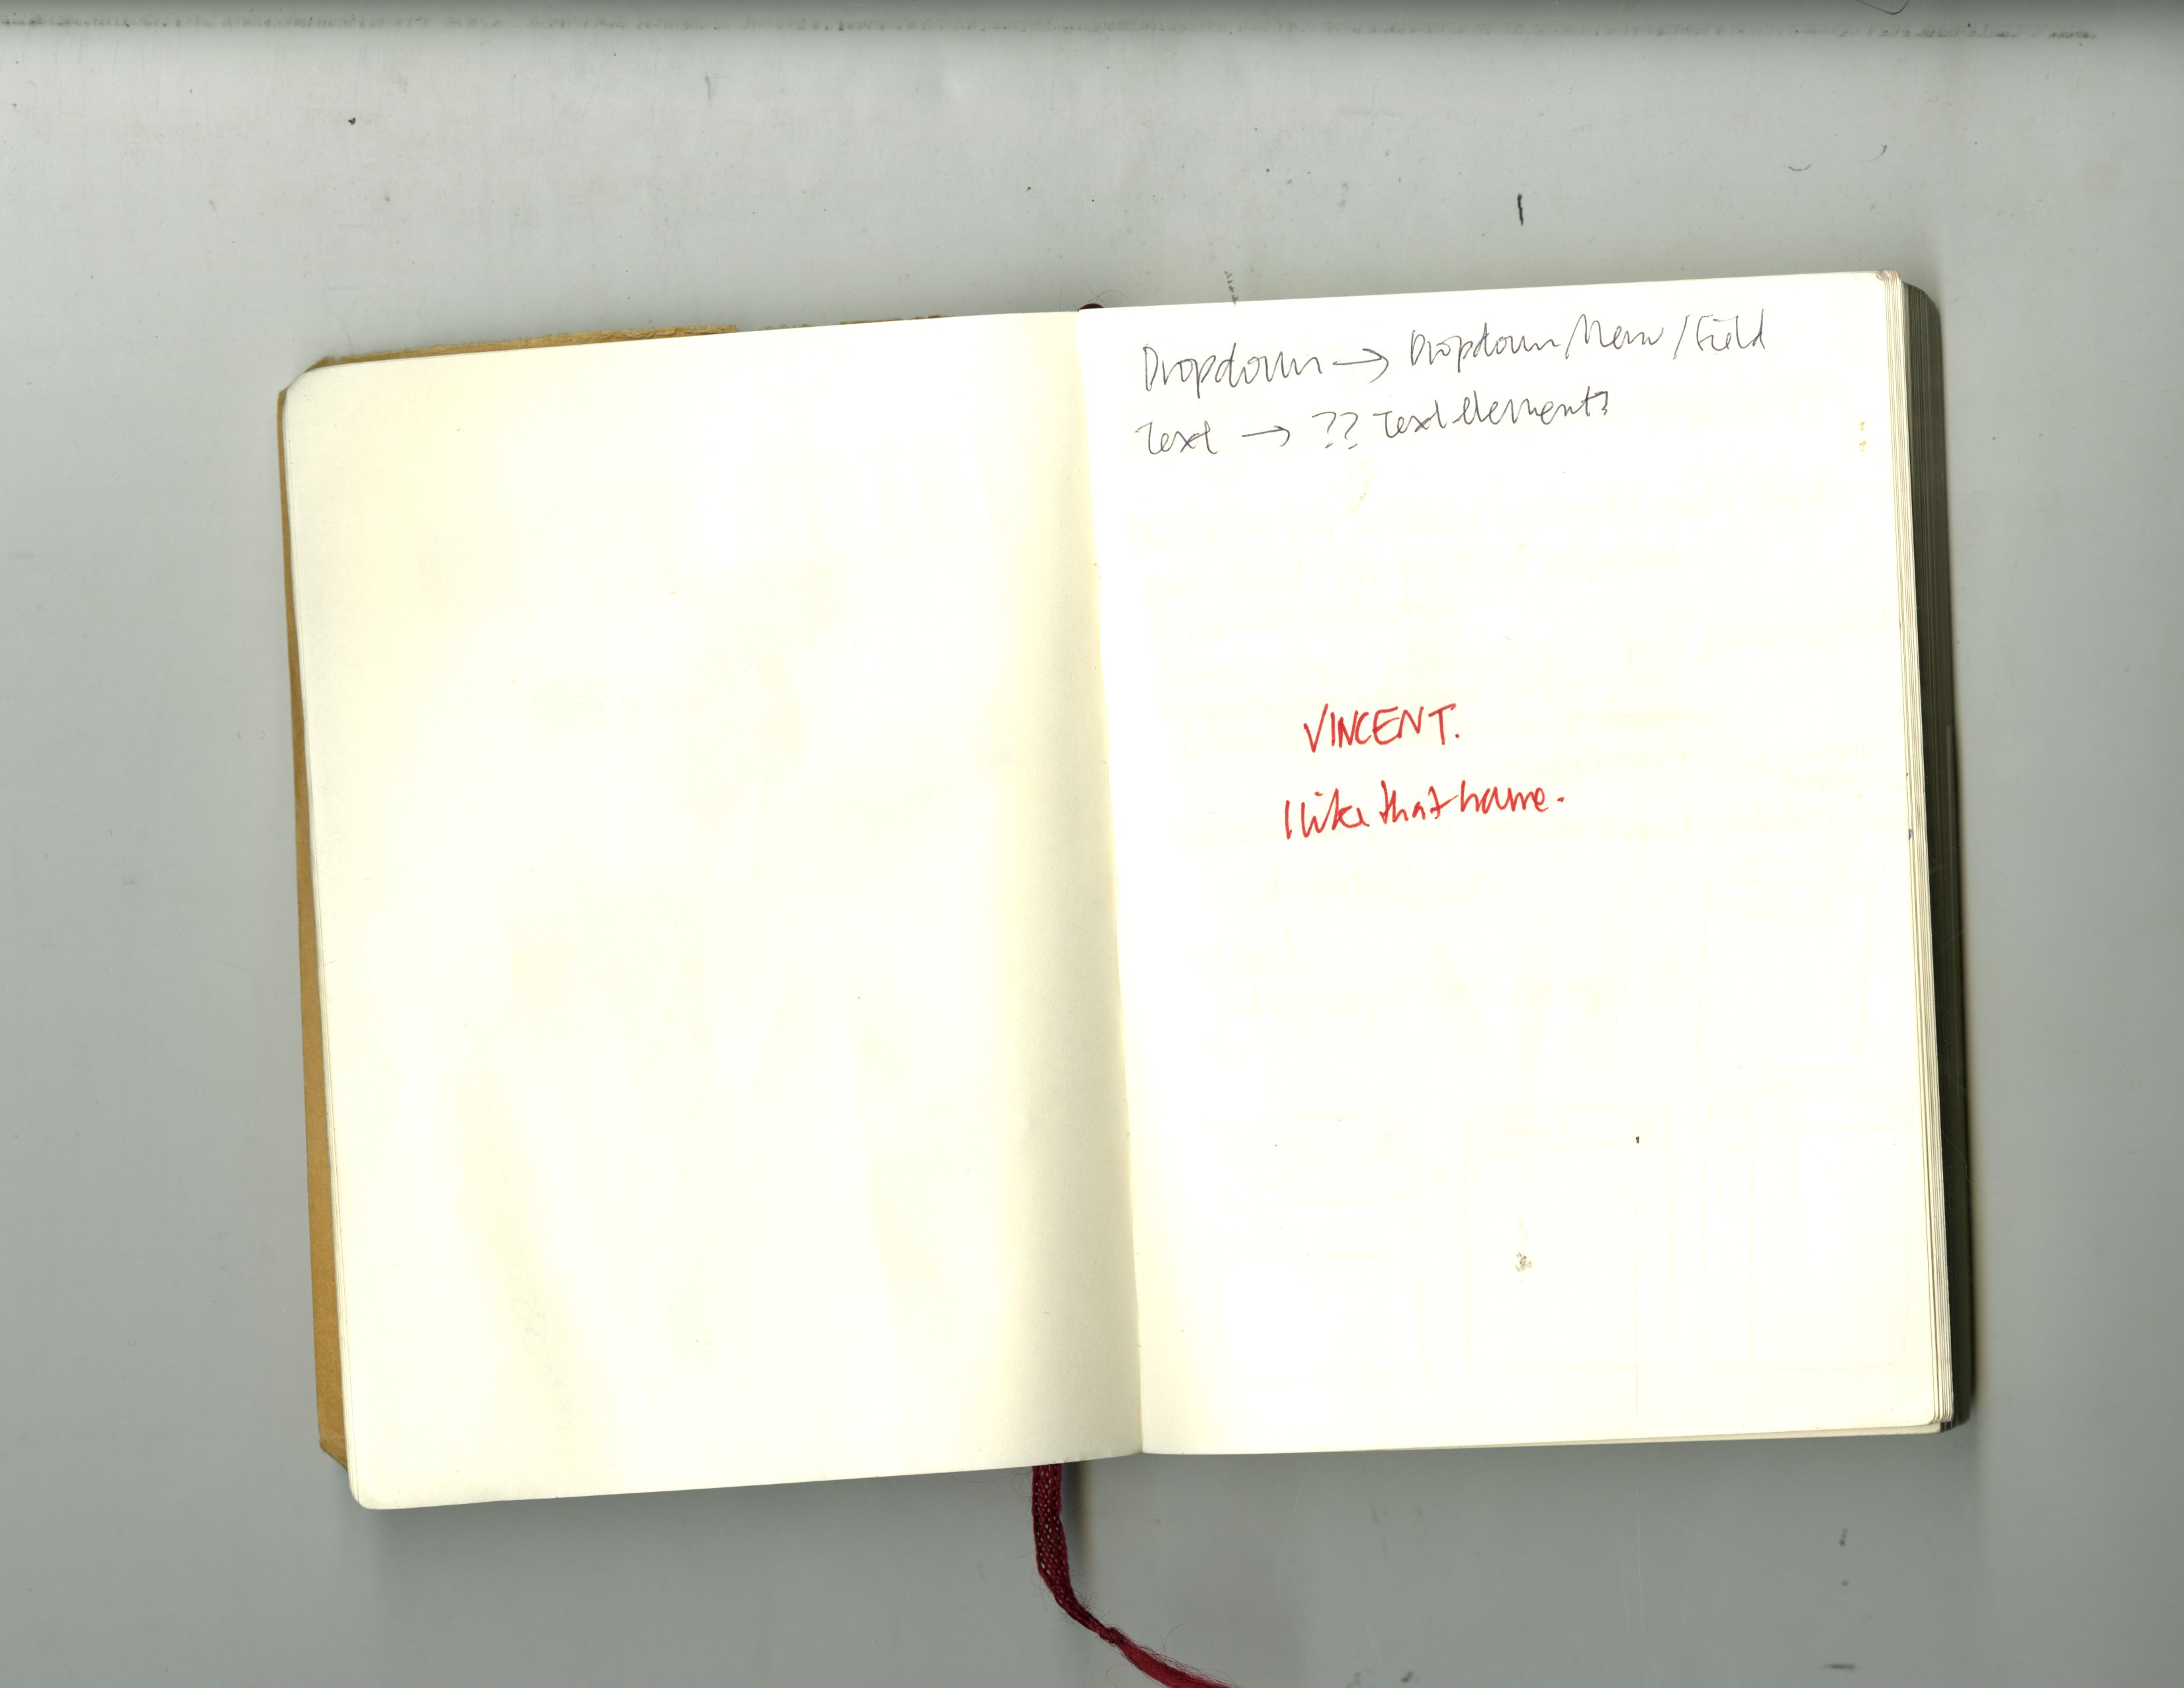 Dropdown → Dropdown/Menu/Field
Text → ?? Text Elements
VINCENT.
I like that name.